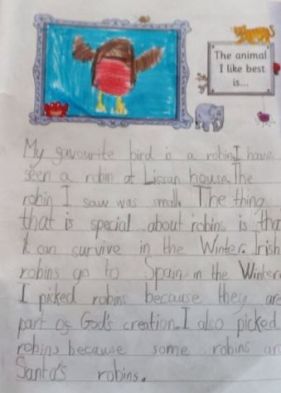 The animal
I like best
is...
My gavourite bird is a robin. I have
seen a robin at Lissan house. The
robin I saw was small. The thing
that is special about robins is tha
it can survive in the Winter. Irish
robins go to Spain in the Winter
I picked robins because they are
part og God's creation. I also picked
robins because some robins ar
Santa's robins.